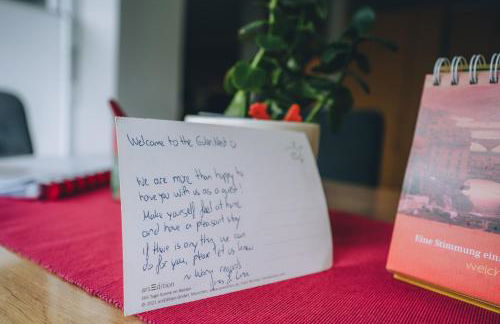 Welcome to the
We are more than happy to
have you with us as a guest!
Make yourself feel at home
and have a pleasant stay.
If there is anything we can
do for you, please let us know
~ Warm regards
arsEdition
Eine Stimmung ein
welch